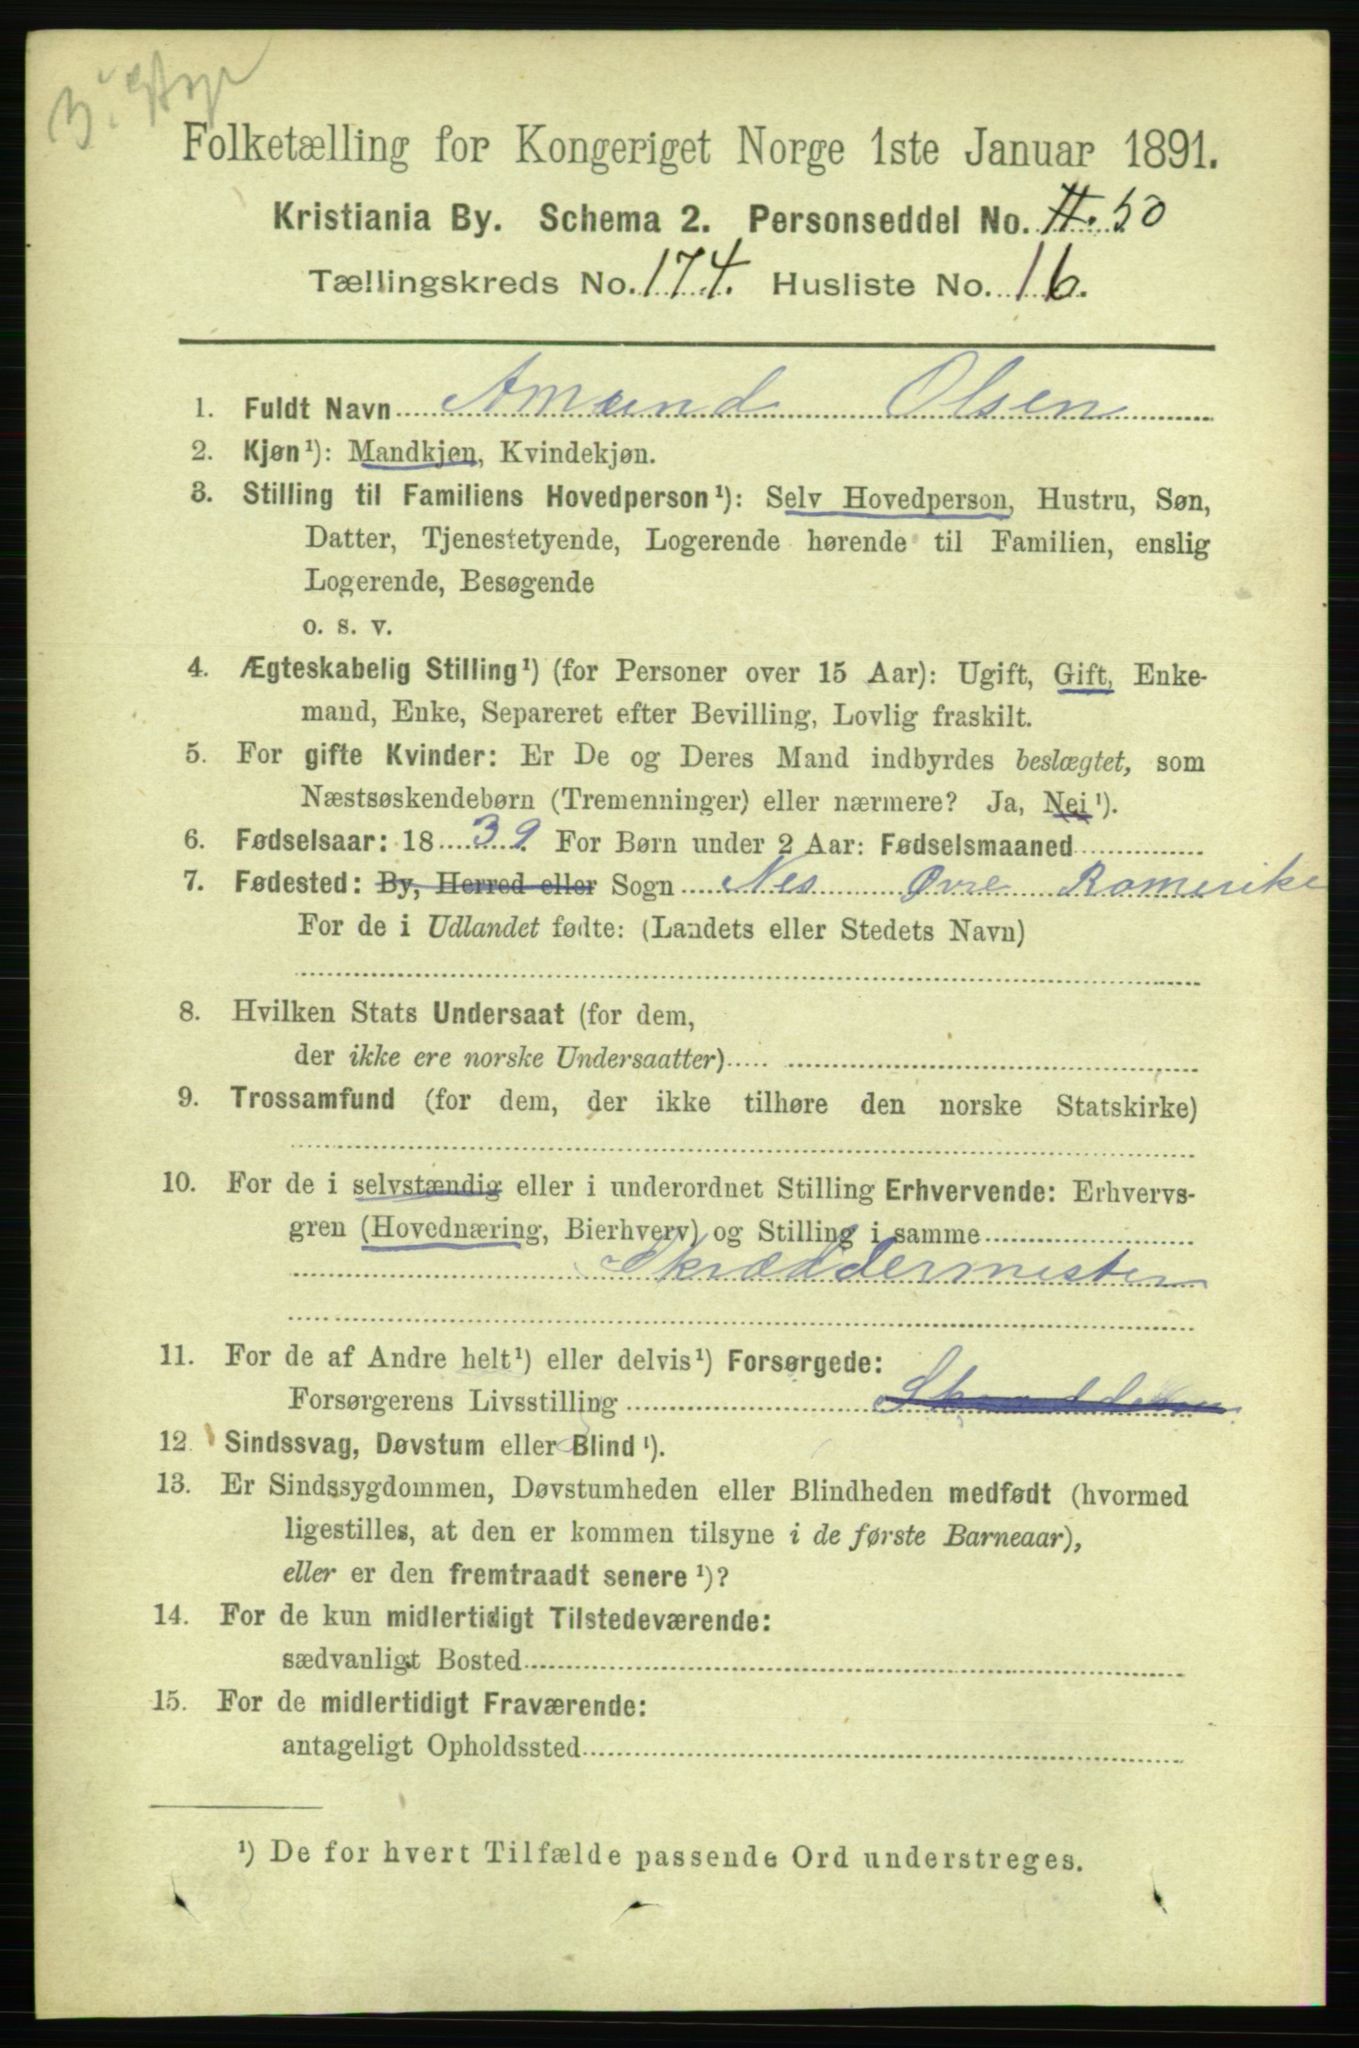 Folketælling for Kongeriget Norge 1ste Januar 1891.
Kristiania By. Schema 2. Personseddel No. 50
Tællingskreds No. 174. Husliste No. 16.
1. Fuldt Navn Amund Olsen
2. Kjøn¹): Mandkjøn, Kvindekjøn.
3. Stilling til Familiens Hovedperson¹): Selv Hovedperson, Hustru, Søn,
Datter, Tjenestetyende, Logerende hørende til Familien, enslig
Logerende, Besøgende
o. s. v.
4. Ægteskabelig Stilling¹) (for Personer over 15 Aar): Ugift, Gift, Enke-
mand, Enke, Separeret efter Bevilling, Lovlig fraskilt.
5. For gifte Kvinder: Er De og Deres Mand indbyrdes beslægtet, som
Næstsøskendebørn (Tremenninger) eller nærmere? Ja, Nei¹).
6. Fødselsaar: 1839. For Børn under 2 Aar: Fødselsmaaned
7. Fødested: By, Herred eller Sogn Nes Øvre Romerike
For de i Udlandet fødte: (Landets eller Stedets Navn)
8. Hvilken Stats Undersaat (for dem,
der ikke ere norske Undersaatter)
9. Trossamfund (for dem, der ikke tilhøre den norske Statskirke)
10. For de i selvstændig eller i underordnet Stilling Erhvervende: Erhvervs-
gren (Hovednæring, Bierhverv) og Stilling i samme
Skræddermester
11. For de af Andre helt¹) eller delvis¹) Forsørgede:
Forsørgerens Livsstilling
12 Sindssvag, Døvstum eller Blind¹).
13. Er Sindssygdommen, Døvstumheden eller Blindheden medfødt (hvormed
ligestilles, at den er kommen tilsyne i de første Barneaar),
eller er den fremtraadt senere¹)?
14. For de kun midlertidigt Tilstedeværende:
sædvanligt Bosted
15. For de midlertidigt Fraværende:
antageligt Opholdssted
¹) De for hvert Tilfælde passende Ord understreges.